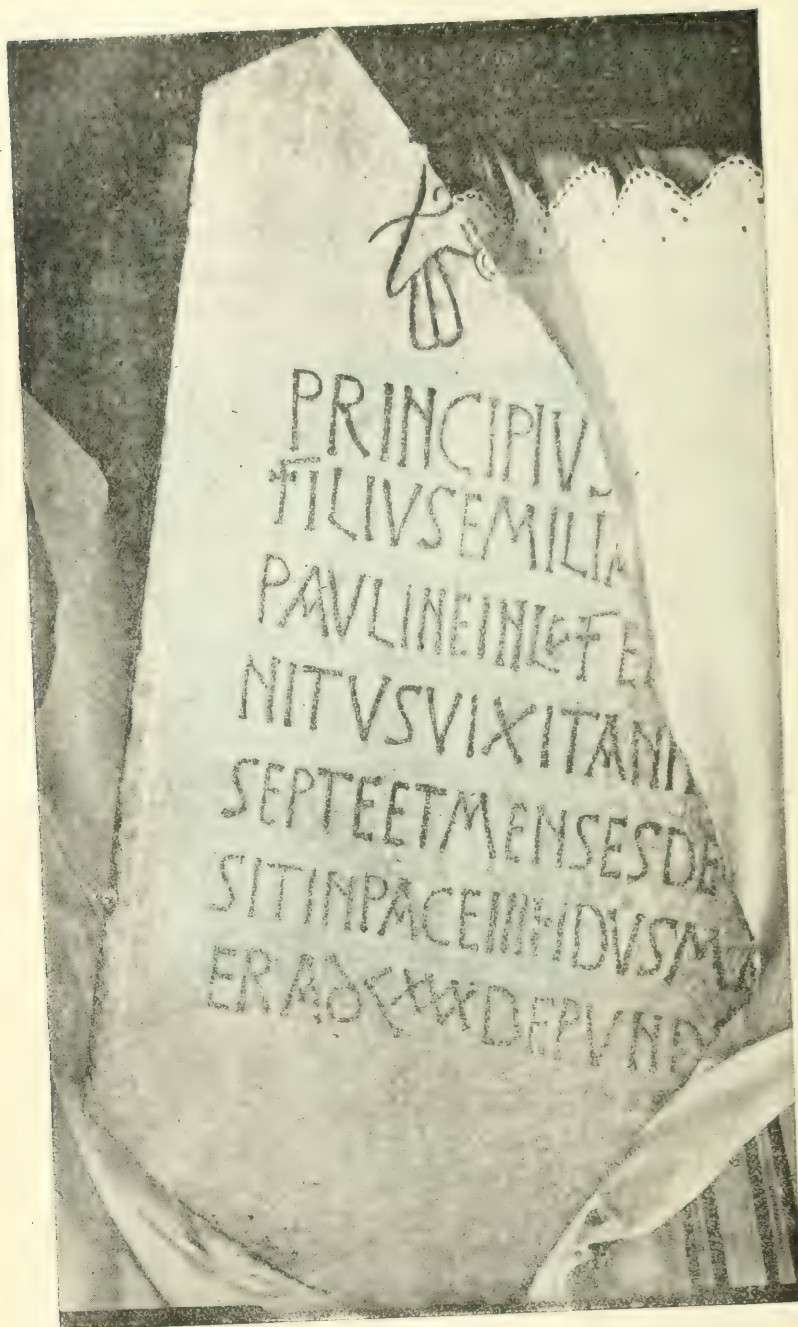 PRINCIPIV
FILIVSEMILI
PAVLINEINL FE
NITVSVIXITANN
SEPTEETMENSESDE
SITINPACEIIIIIDVSM
ERA DEPVN